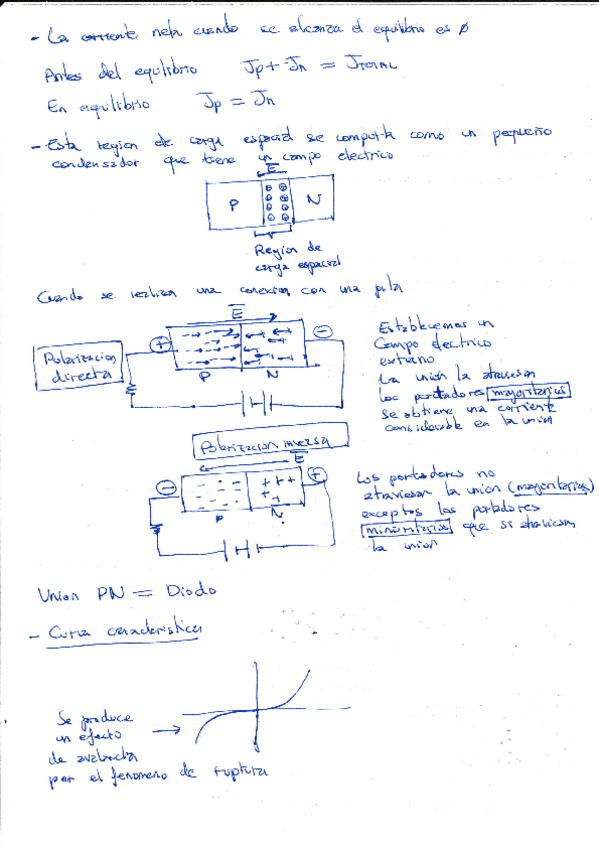 - La corriente neta cuando se alcanza el equilibrio es ∅
Antes del equilibrio Jp + Jn = JTOTAL
En equilibrio Jp = Jn
- Esta region de carga espacial se comporta como un pequeño
condensador que tiene un campo electrico
E
P N
Region de
carga espacial
Cuando se realiza una conexion con una pila
E
+ -
Polarizacion
directa
P N
Establecemos un
Campo electrico
externo
La union la atraviesan
los portadores mayoritarios
se obtiene una corriente
considerable en la union
Polarizacion inversa
E
- +
P N
Los portadores no
atraviesan la union (mayoritarios)
exceptos los portadores
minoritarios que si atraviesan
la union
Union PN = Diodo
- Curva caracteristica
Se produce
un efecto
de avalancha
por el fenomeno de ruptura